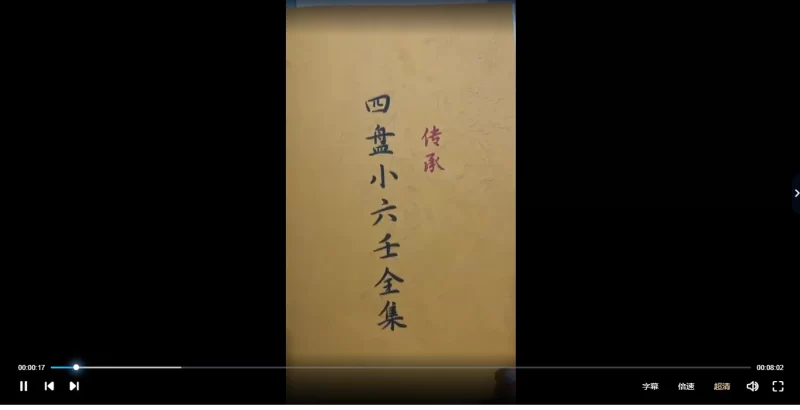 传承
四盘小六壬全集
00:00:17
00:08:02
字幕
倍速
超清